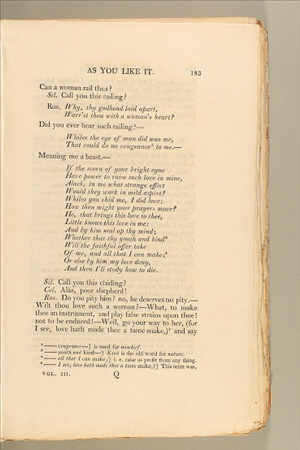 AS YOU LIKE IT. 183
Can a woman rail thus?
Sil. Call you this railing?
Ros. Why, thy godhead laid apart,
Warr'st thou with a woman's heart?
Did you ever hear such railing?—
Whiles the eye of man did woo me,
That could do no vengeance⁸ to me.—
Meaning me a beast.—
If the scorn of your bright eyne
Have power to raise such love in mine,
Alack, in me what strange effect
Would they work in mild aspéct?
Whiles you chid me, I did love;
How then might your prayers move?
He, that brings this love to thee,
Little knows this love in me:
And by him seal up thy mind;
Whether that thy youth and kind⁹
Will the faithful offer take
Of me, and all that I can make;¹
Or else by him my love deny,
And then I'll study how to die.
Sil. Call you this chiding?
Cel. Alas, poor shepherd!
Ros. Do you pity him? no, he deserves no pity.—
Wilt thou love such a woman?—What, to make
thee an instrument, and play false strains upon thee!
not to be endured!—Well, go your way to her, (for
I see, love hath made thee a tame snake,)² and say
⁸ —— vengeance—] is used for mischief.
⁹ —— youth and kind—] Kind is the old word for nature.
¹ —— all that I can make;] i. e. raise as profit from any thing.
² —— I see, love hath made thee a tame snake,)] This term was,
VOL. III. Q